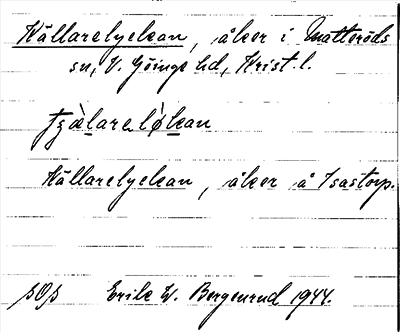 Källarelyckan, åker i Matteröds
sn, V. Göinge hd, Krist. l.
tzàlarelø̀kan
Källarelyckan, åker å Isastorp.
Erik W. Bergenrud 1944.